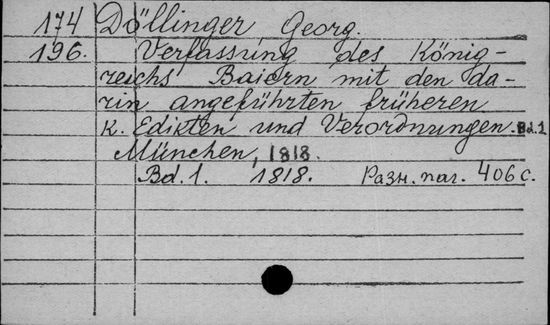 174 Döllinger Georg.
196. Verfassung des König-
reichs Baiern mit den da-
rin angeführten früheren
K. Edikten und Verordnungen. Bd.1
München, 1818.
Bd. 1. 1818. Разн. паг. 406 с.